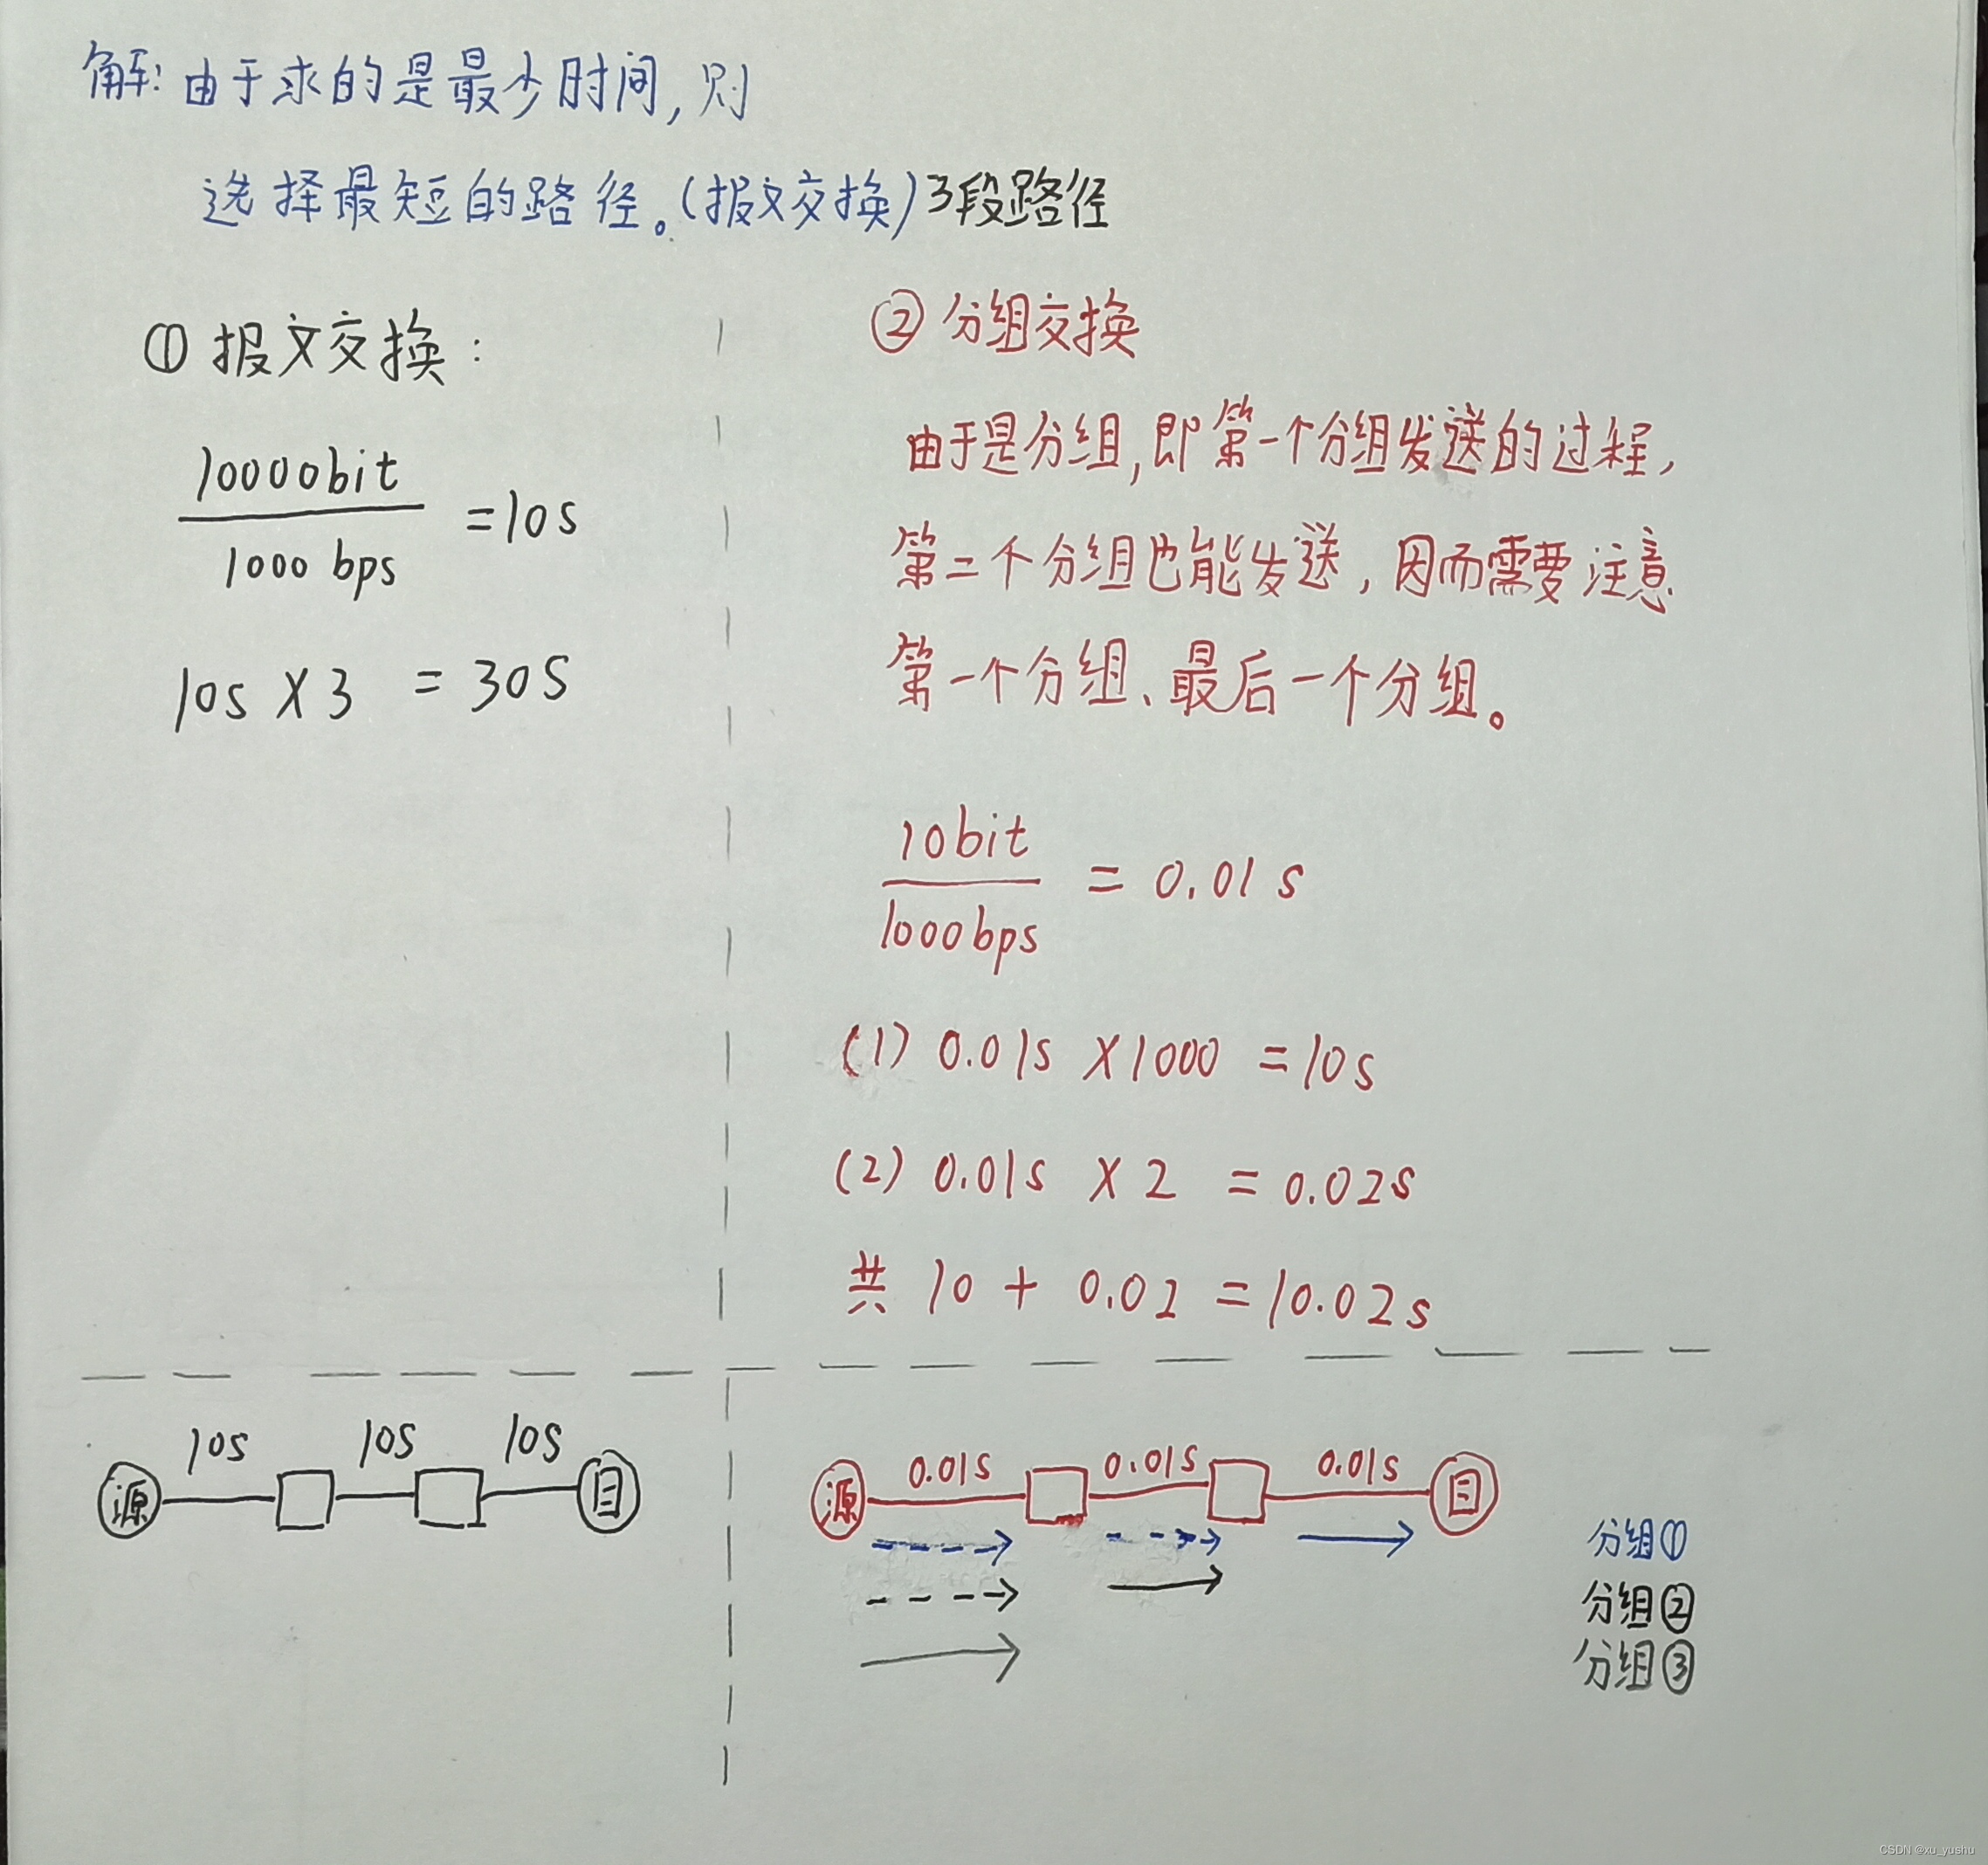 解:由于求的是最少时间,则
选择最短的路径。(报文交换)3段路径
① 报文交换:
10000bit
1000 bps
=10s
10s X 3 = 30S
② 分组交换
由于是分组,即第一个分组发送的过程,
第二个分组也能发送,因而需要注意
第一个分组、最后一个分组。
10bit
1000bps
= 0.01 s
(1) 0.01s X1000 =10s
(2) 0.01s X 2 = 0.02s
共 10 + 0.02 =10.02s
10s 10s 10s
源 目
0.01s 0.01s 0.01s
源 目
分组①
分组②
分组③
CSDN @xu_yushu